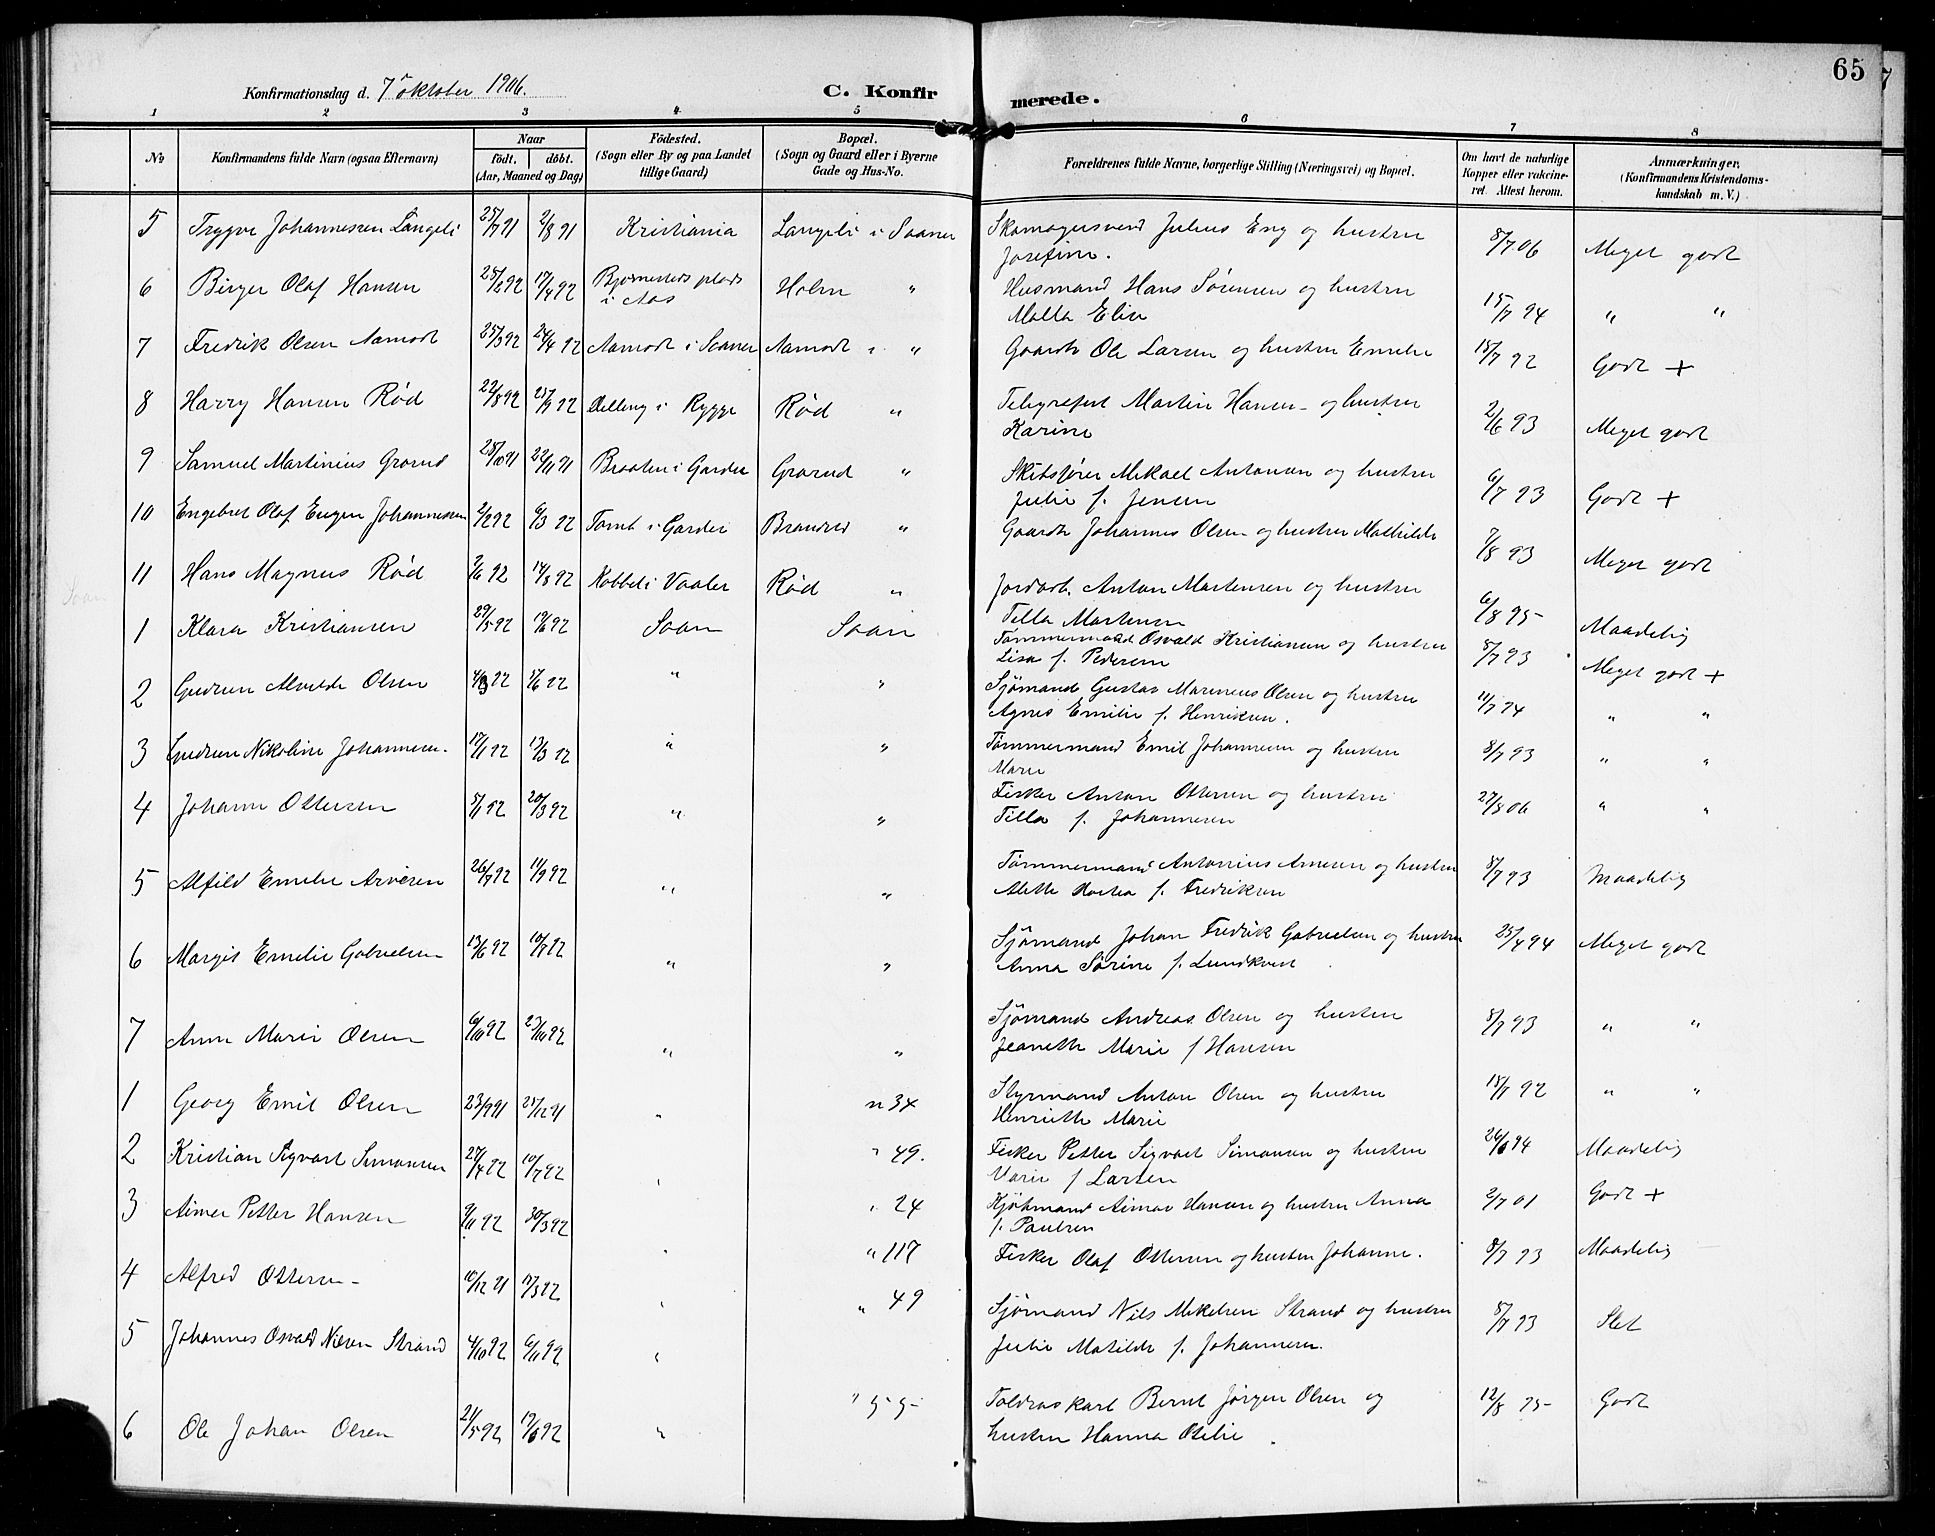 65
Konfirmationsdag d. 7 oktober 1906.
C. Konfirmerede.
1 2 3 4 5 6 7 8
No
Konfirmandens fulde Navn (ogsaa Efternavn)
Naar
födt. döbt.
(Aar, Maaned og Dag)
Födested.
(Sogn eller By og paa Landet
tillige Gaard)
Bopæl.
(Sogn og Gaard eller i Byerne
Gade og Hus-No.
Forældrenes fulde Navne, borgerlige Stilling (Næringsvei) og Bopæl.
Om havt de naturlige
Kopper eller vakcine-
ret. Attest herom.
Anmærkninger.
(Konfirmandens Kristendoms-
kundskab m. V.)
5 Trygve Johannessen Langeli 25/7 91 2/8 91 Kristiania Langeli i Saaner Skomagersvend Julius Eng og hustru 8/7 06 Meget godt
Josefine.
6 Birger Olaf Hansen 25/2 92 17/4 92 Bjørnesteds plads Holm " Husmand Hans Sørensen og hustru 15/7 94 " "
i Aas Malla Elise
7 Fredrik Olsen Aamodt 25/3 92 24/4 92 Aamodt i Saaner Aamodt i " Gaardb Ole Larsen og hustru Emelie 15/7 92 Godt +
8 Harry Hansen Rød 22/8 92 25/9 92 Dilling i Rygge Rød " Telegrafist Martin Hansen og hustru 2/6 93 Meget godt
Karine
9 Samuel Martinius Grorud 28/10 91 22/11 91 Braaten i Garder Grorud " Skibsfører Mikael Antonsen og hustru 6/7 93 Godt +
Julie f. Jensen
10 Engebret Olaf Eugen Johannessen 2/2 92 6/3 92 Tomt i Garder Brandrud " Gaardb Johannes Olsen og hustru Mathilde 7/8 93 Meget godt
11 Hans Magnus Rød 7/6 92 14/8 92 Kobbel i Vaaler Rød " Jordarb. Anton Martensen og hustru 6/8 95 Maadelig
Tilla Martensen
1 Klara Kristiansen 29/5 92 19/6 92 Saan Saan Tømmermand Osvald Kristiansen og hustru 8/7 93 Meget godt +
Lisa f. Pedersen
2 Gudrun Alvilde Olsen 4/3 92 17/6 92 " " Sjømand Gustav Marenius Olsen og hustru 11/7 94 " "
Agnes Emilie f. Henriksen.
3 Gudrun Nikoline Johannesen. 17/1 92 13/3 92 " " Tømmermand Emil Johannesen og hustru 8/7 93 " "
Marie
4 Johanne Ottersen 5/1 92 20/3 92 " " Fisker Anton Ottersen og hustru 27/8 06 " "
Tilla f. Johannesen
5 Alfild Emelie Arnesen 26/7 92 11/9 92 " " Tømmermand Antonius Arnesen og hustru 8/7 93 Maadelig
Alette f. Fredriksen
6 Margit Emelie Gabrielsen 13/6 92 10/7 92 " " Sjømand Johan Fredrik Gabrielsen og hustru 25/4 94 Meget godt
Anna Sørine f. Lundkvist
7 Anna Marie Olsen 6/10 92 23/10 92 " " Sjømand Andreas Olsen og hustru 8/7 93 " "
Jeanette Marie f Hansen
1 Georg Emil Olsen 23/9 91 25/12 91 " n 34 Styrmand Anton Olsen og hustru 15/7 92 " "
Henriette Marie
2 Kristian Sigvart Simonsen 27/4 92 10/7 92 " " 49. Fisker Petter Sigvart Simonsen og hustru 26/6 94 Maadelig
Marie f Larsen
3 Aimer Petter Hansen 9/11 92 30/3 92 " " 24 Kjøbmand Aimar Hansen og hustru Anna 2/7 01 Godt +
f. Paulsen
4 Alfred Ottersen 10/12 91 17/3 92 " " 117 Fisker Olaf Ottersen og hustru Johanne. 8/7 93 Maadelig
5 Johannes Osvald Nilsen Strand 4/10 92 6/11 92 " " 49 Sjømand Nils Mikelsen Strand og hustru 8/7 93 Slet
Julie Matilde f. Johannesen.
6 Ole Johan Olsen 21/5 92 19/6 92 " " 55 Toldroskarl Bernt Jørgen Olsen og 12/8 95 Godt
hustru Hanna Otilie